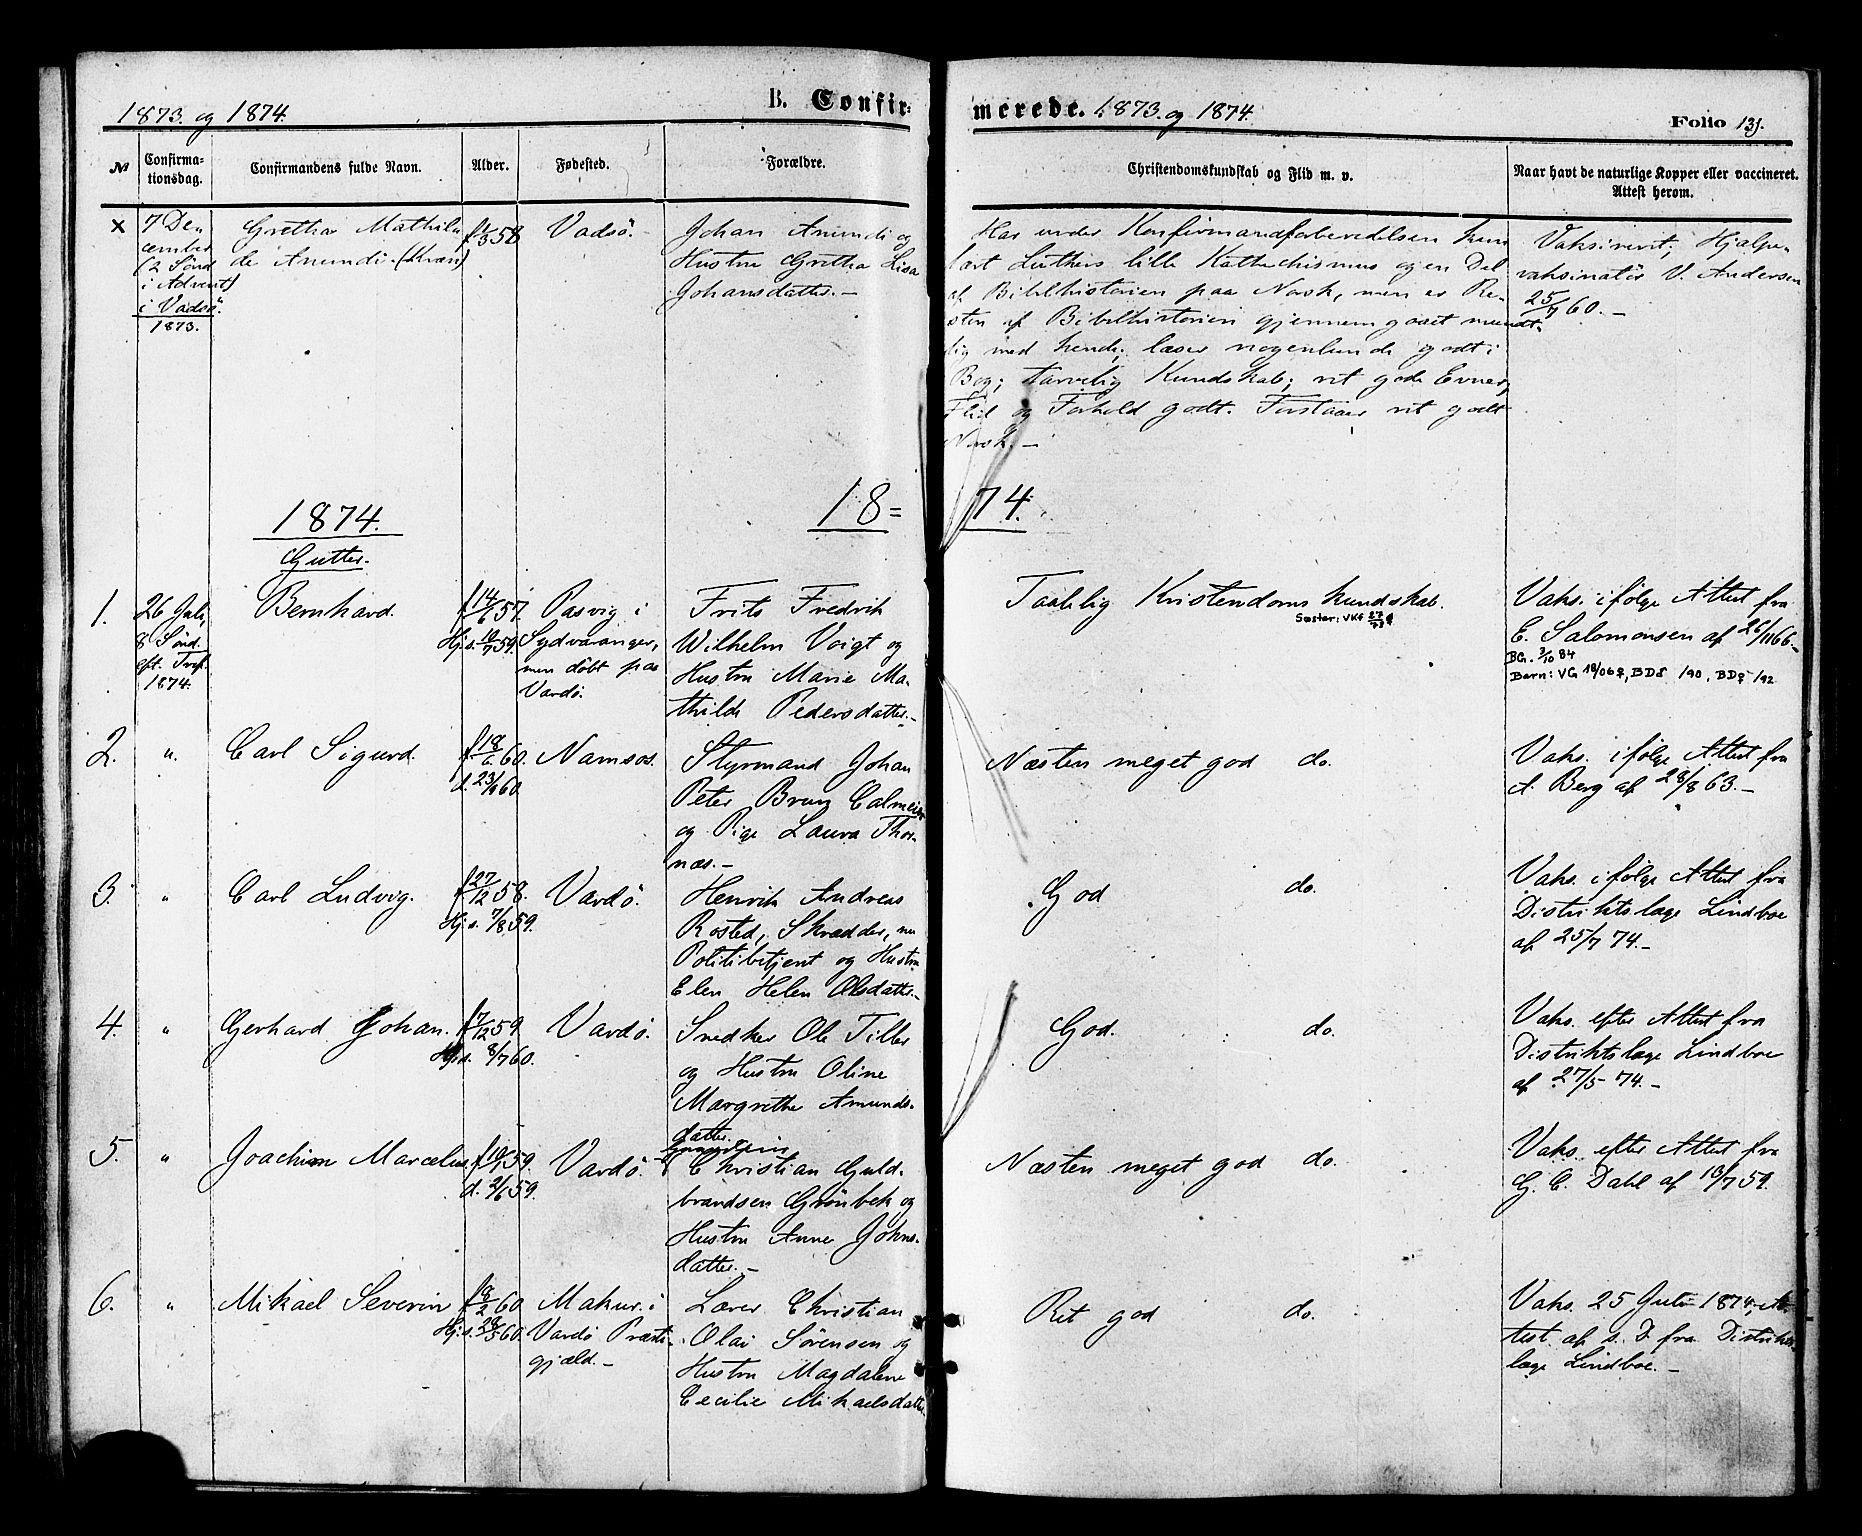 1873. og 1874.
B. Confir-
merede. 1873. og 1874.
Folio 131.
№
Confirma-
tionsdag.
Confirmandens fulde Navn.
Alder.
Fødested.
Forældre.
Christendomskundskab og Flid m. v.
Naar havt de naturlige Kopper eller vaccineret.
Attest herom.
x
7 De-
cember
(2 Sønd
i Advent)
i Vadsö.
1873.
Gretha Mathil-
de Anundi. (Kvæn)
f. 58
Vadsö.
Johan Anundi og
Hustru Gretha Lisa
Johansdatter. —
Har under Konfirmandforberedelsen kun
lært Luthers lille Kathechismus og en Del
af Bibelhistorien paa Norsk, men er Re-
sten af Bibelhistorien gjennemgaaet mundt-
lig med hende; læser nogenlunde godt i
Bog; tarvelig Kundskab; ret gode Evner,
Flid og Forhold godt. Forstaar ret godt
Norsk. —
Vaksineret; Hjælpe-
vaksinatör V. Andersen
25/7 60. —
1874.
18 =
74.
Gutter.
1.
26 Juli,
8 Sönd.
eft. Tref.
1874.
Bernhard.
f. 14/6 57.
Hj. s. 10/7 59.
Pasvig i
Sydvaranger,
men döbt paa
Vardö.
Frits Fredrik
Wilhelm Voigt og
Hustru Marie Ma-
thilde Pedersdatter. —
Taalelig Kristendomskundskab.
Søster: VKf
Vaks. ifølge Attest fra
E. Salomonsen af 26/11 66. —
BG. 3/10 84
Barn: VG 18/06 ♀, BD♂ /90, BD♀ /92
2.
"
Carl Sigurd.
f. 18/6 60.
d. 23/9 60
Namsos.
Styrmand Johan
Peter Brun Calmeier
og Pige Laura Thor-
næs. —
Næsten meget god do.
Vaks. ifølge Attest fra
A. Berg af 28/8 63. —
3.
"
Carl Ludvig.
f. 27/12 58.
Hj. s. 7/8 59.
Vardö.
Henrik Andreas
Rosted, Skrædder, nu
Politibetjent og Hustru
Elen Helen Olsdatter. —
God do.
Vaks. ifølge Attest fra
Distriktslæge Lindboe
af 25/7 74. —
4.
"
Gerhard Johan.
f. 7/12 59.
Hj. s. 8/7 60.
Vardö.
Snedker Ole Tiller
og Hustru Oline
Margrethe Amunds-
datter.
God. do.
Vaks. efter Attest fra
Distriktslæge Lindboe
af 27/5 74. —
5.
"
Joachim Marcelius.
f. 19/1 59.
d. 2/6 59.
Vardö.
Christian Guld-
brandsen Grönbek og
Hustru Anne Johns-
datter. —
Næsten meget god do.
Vaks. efter Attest fra
G. C. Dahl af 13/7 59.
6.
"
Mikael Severin
f. 8/2 60
Hj. s. 28/5 60.
Makur i
Vardö Præste-
gjæld. —
Lærer Christian
Olai Sörensen og
Hustru Magdalene
Cecilie Mikaelsdatter.
Ret god do.
Vaks. 25 Juli 1874, At-
test af s. D. fra Distrikts-
læge Lindboe. —